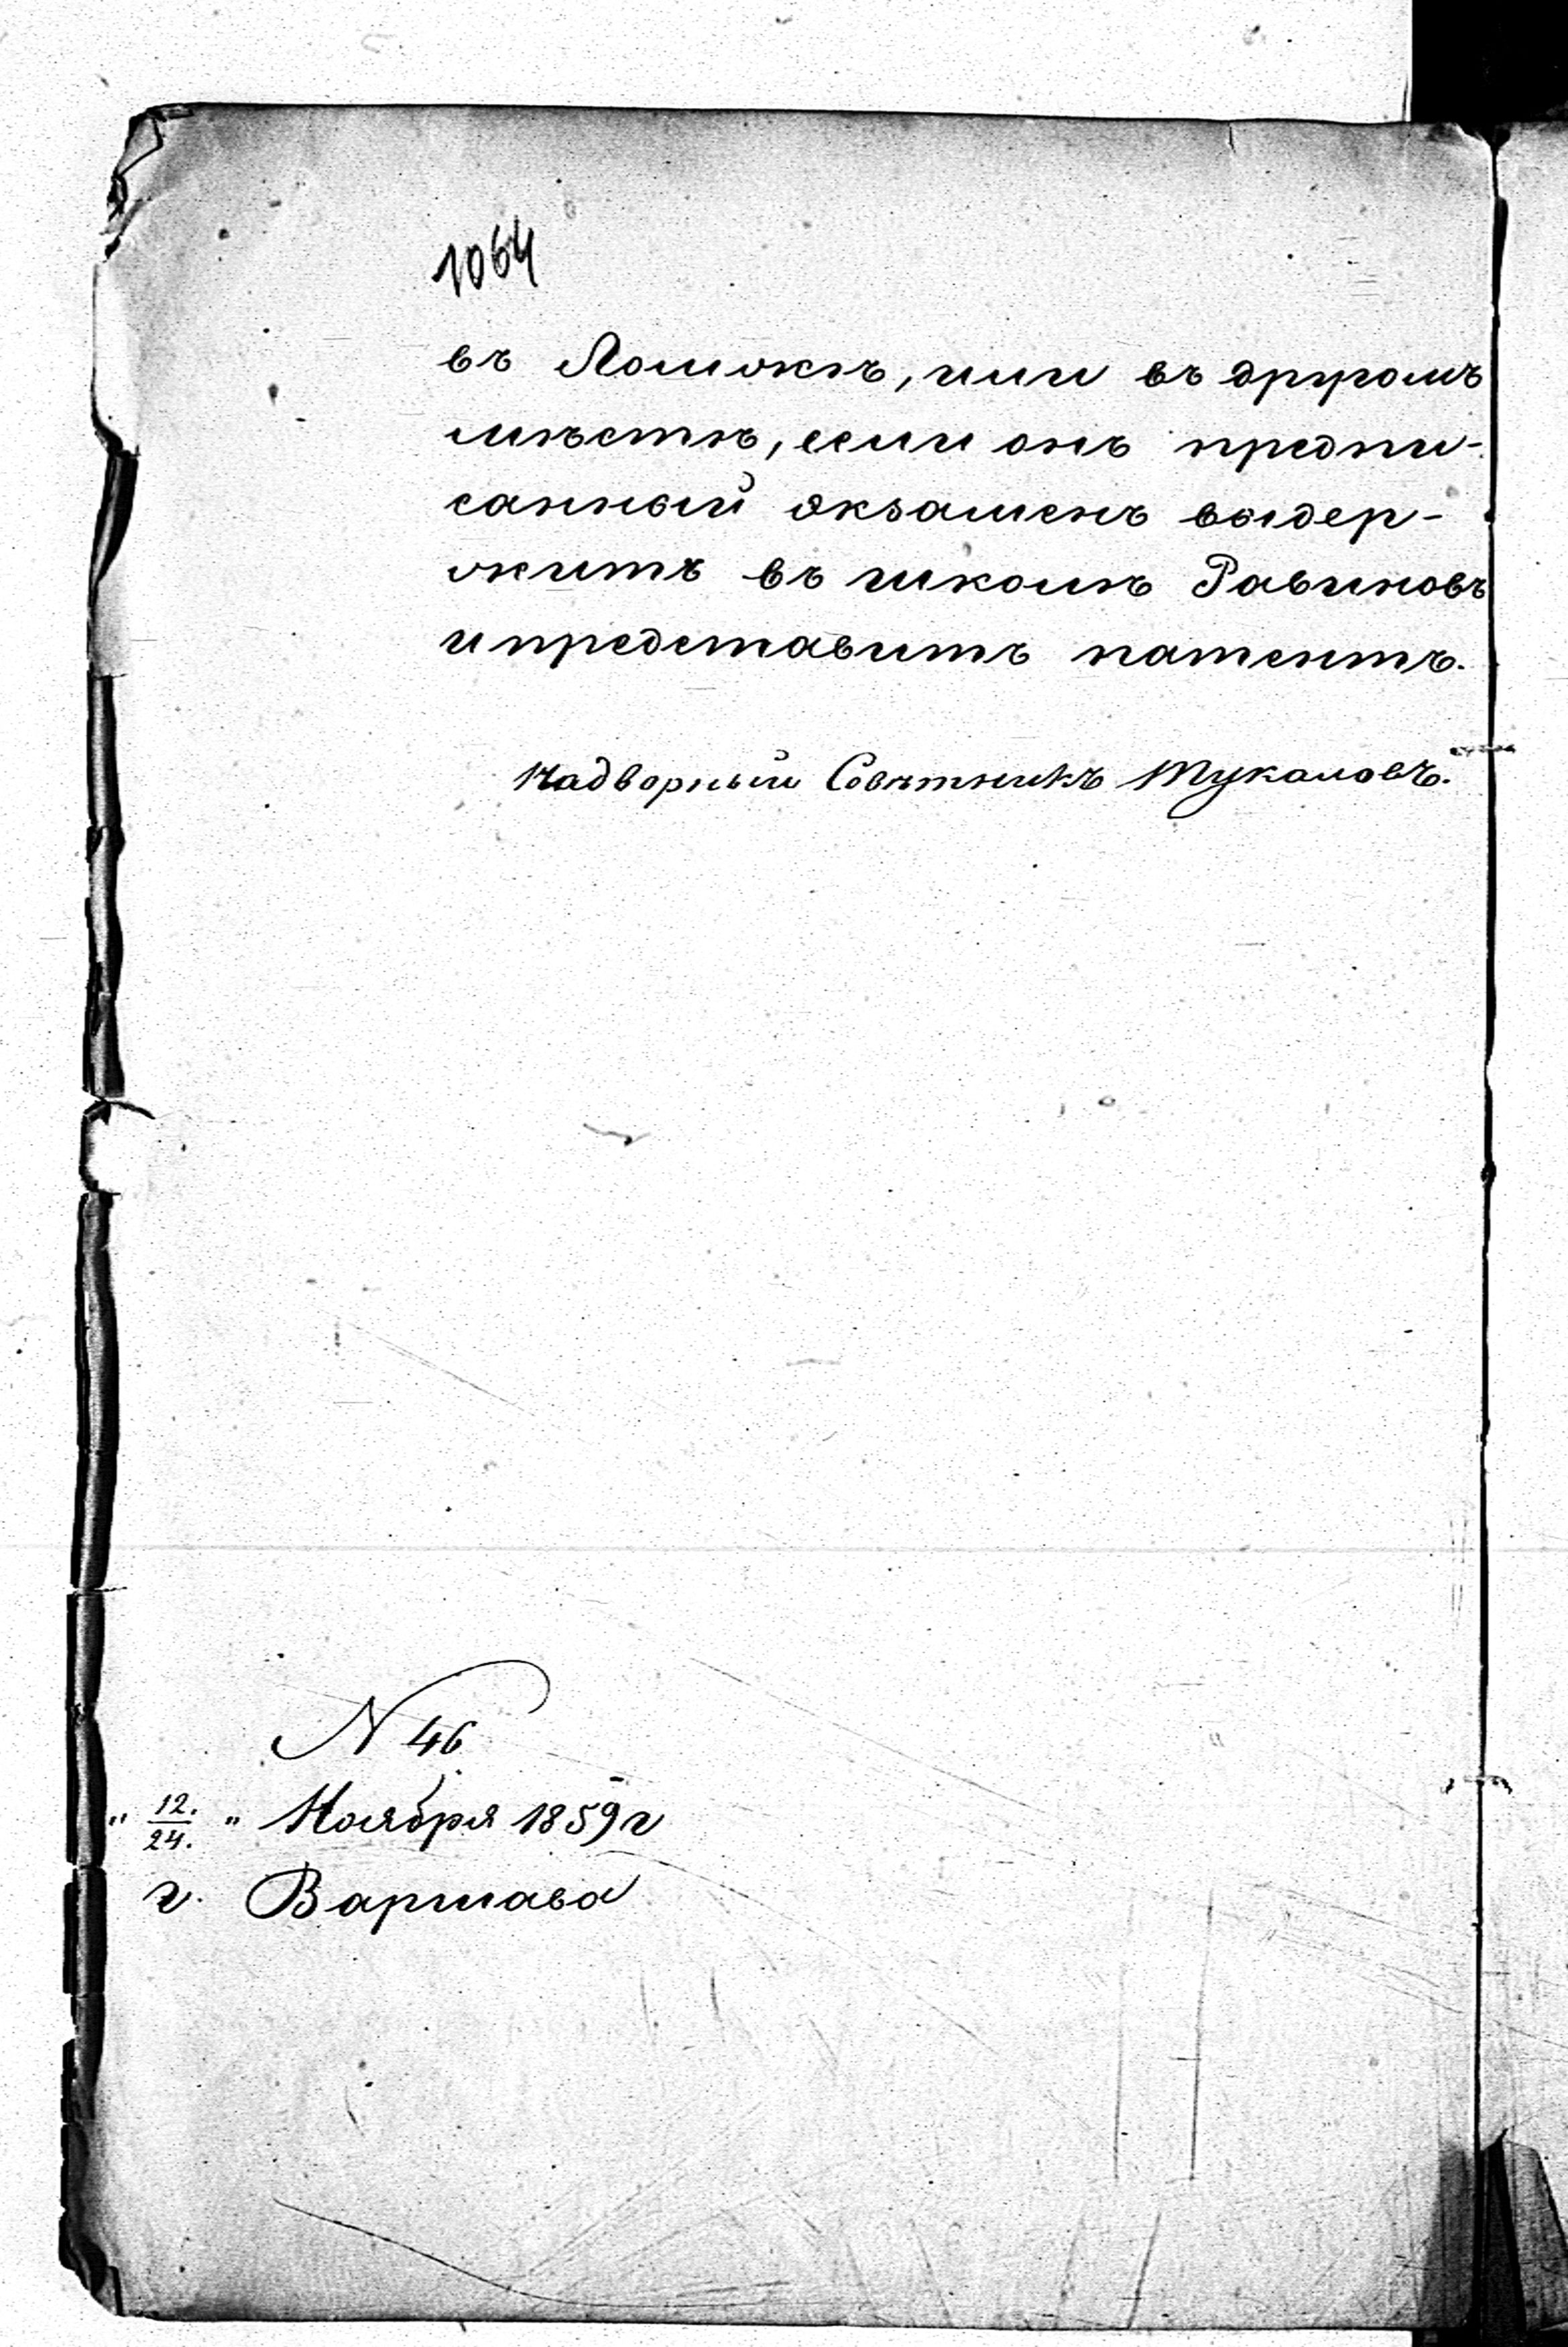 1064
въ Ломжѣ, или въ другомъ
мѣстѣ, если онъ предпи-
санный экзаменъ выдер-
житъ въ школѣ Равиновъ
и представитъ патентъ.
Надворный Совѣтникъ Тукаловъ.
N 46
„ 12./24. " Ноября 1859 г
г. Варшава